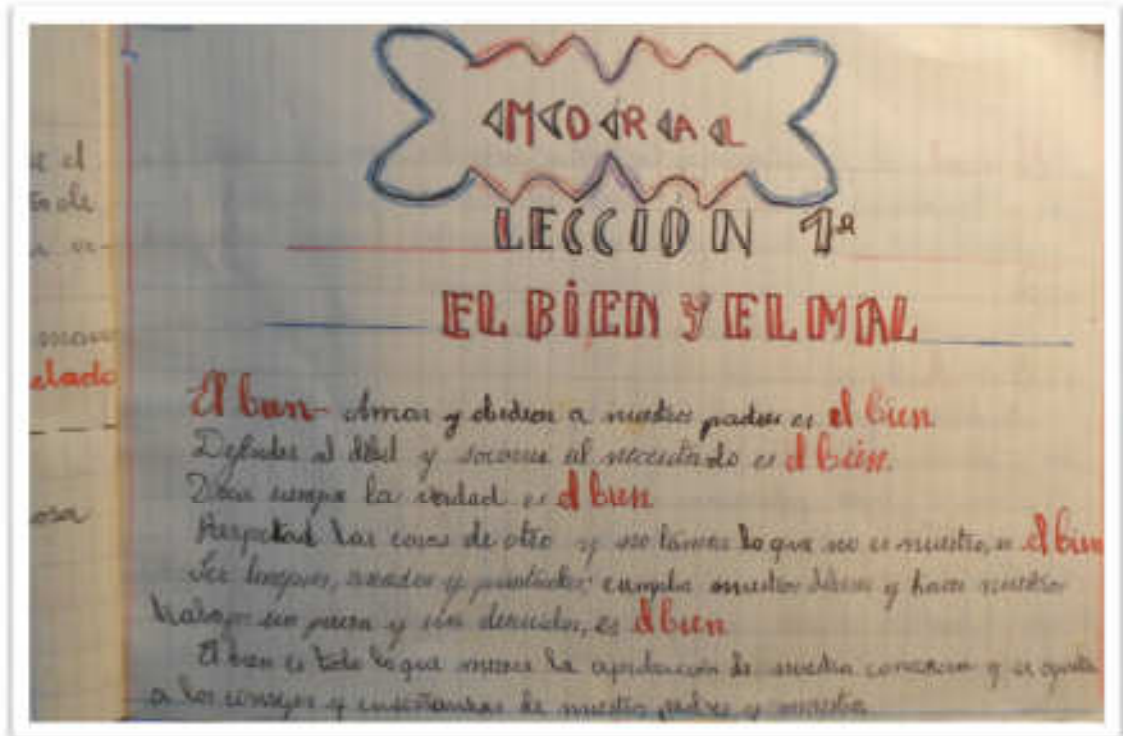 MORAL
LECCIÓN 1ª
EL BIEN Y EL MAL
El bien- Amar y obedecer a nuestros padres es el bien.
Defender al débil y socorrer al necesitado es el bien.
Decir siempre la verdad es el bien
Respetar las cosas de otro y no tomar lo que no es nuestro, es el bien
Ser limpios, aseados y puntuales; cumplir nuestros deberes y hacer nuestro
trabajo sin pereza y sin descuidos, es el bien
El bien es todo lo que merece la aprobación de nuestra conciencia y se ajusta
a los consejos y enseñanzas de nuestros padres y maestros
se el
elado
osa